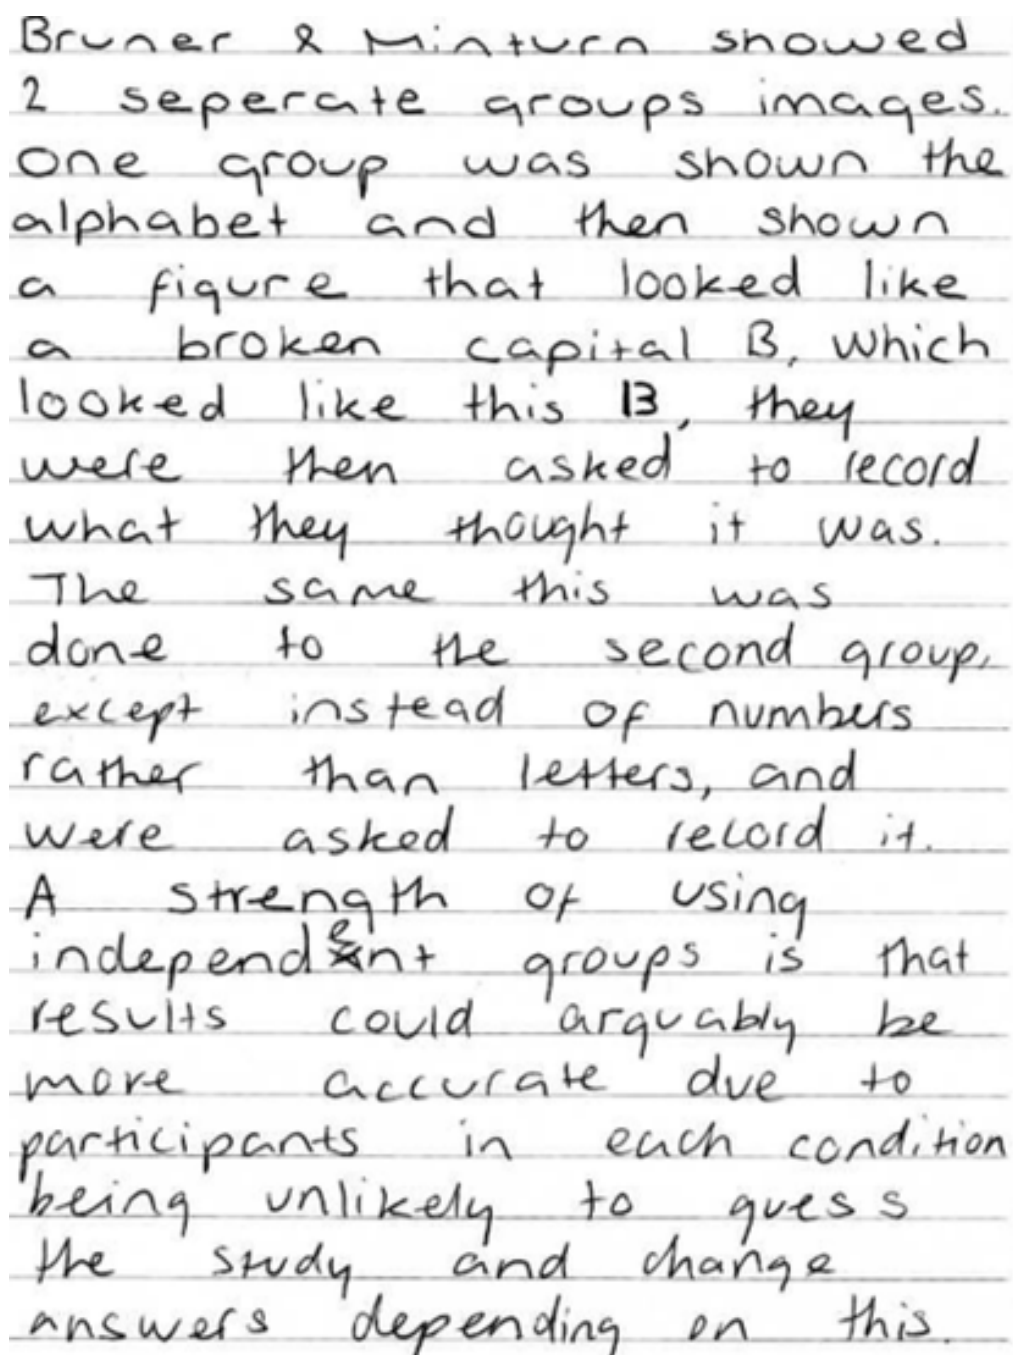 Bruner & Minturn showed
2 seperate groups images.
One group was shown the
alphabet and then shown
a figure that looked like
a broken capital B, which
looked like this 13, they
were then asked to record
what they thought it was.
The same this was
done to the second group,
except instead of numbers
rather than letters, and
were asked to record it.
A strength of using
independent groups is that
results could arguably be
more accurate due to
participants in each condition
being unlikely to guess
the study and change
answers depending on this.